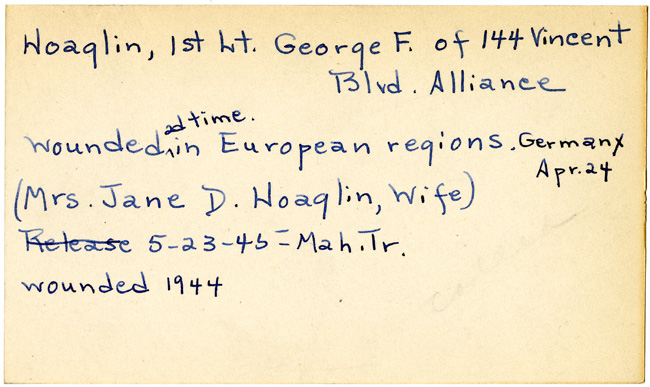 Hoaglin, 1st Lt. George F. of 144 Vincent
Blvd. Alliance
2d time.
wounded in European regions. Germany
Apr. 24
(Mrs. Jane D. Hoaglin, Wife)
Release 5-23-45 = Mah. Tr.
wounded 1944